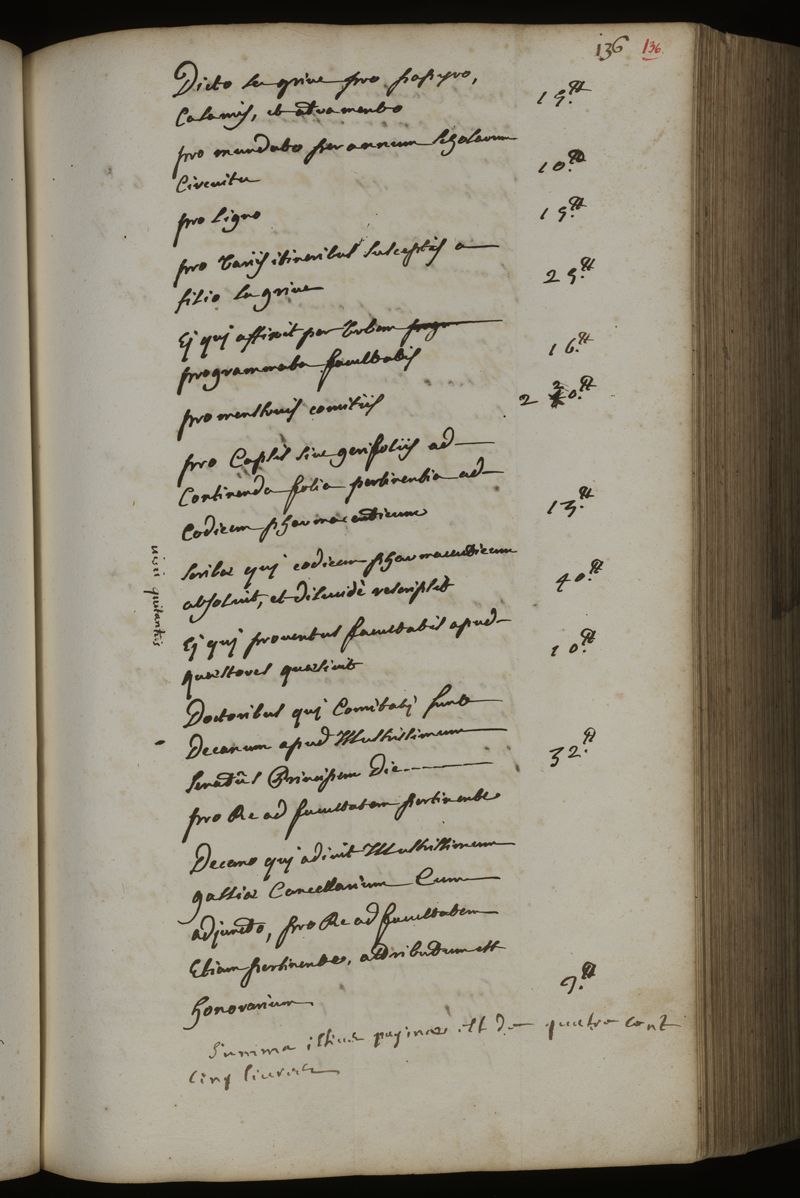 136 136
Dicto la grive pro papyro,
Calamis, et atramento 15.tt
pro mundato per annum scholarum
Circuitu 10.tt
pro Ligno 15.tt
pro variis itineribus susceptis a
filio la grive 25.tt
Ej quj affixit per Urbem
programmata facultatis 16.tt
pro menstruis comitiis 220.tt
pro Capsis sive ad
Continenda folia pertinentia ad
Codicem pharmaceuticum 13.tt
scribæ quj codicem pharmaceuticum
absolvit, et dilucidè rescripsit 40.tt
Ej quj proventus facultatis apud
quæstores quæsivit 10.tt
visis quitantiis
Doctoribus quj Comitatj sunt
Decanum apud Illustrissimum
senatûs Principem die
pro Re ad facultatem pertinente 32.tt
Decano quj adivit Illustrissimum
galliæ Cancellarium Cum
adjuncto, pro Re ad facultatem
Etiam pertinente, attributum est
honorarium 9.tt
Summa istius paginæ est de quatre cent
cinq livres